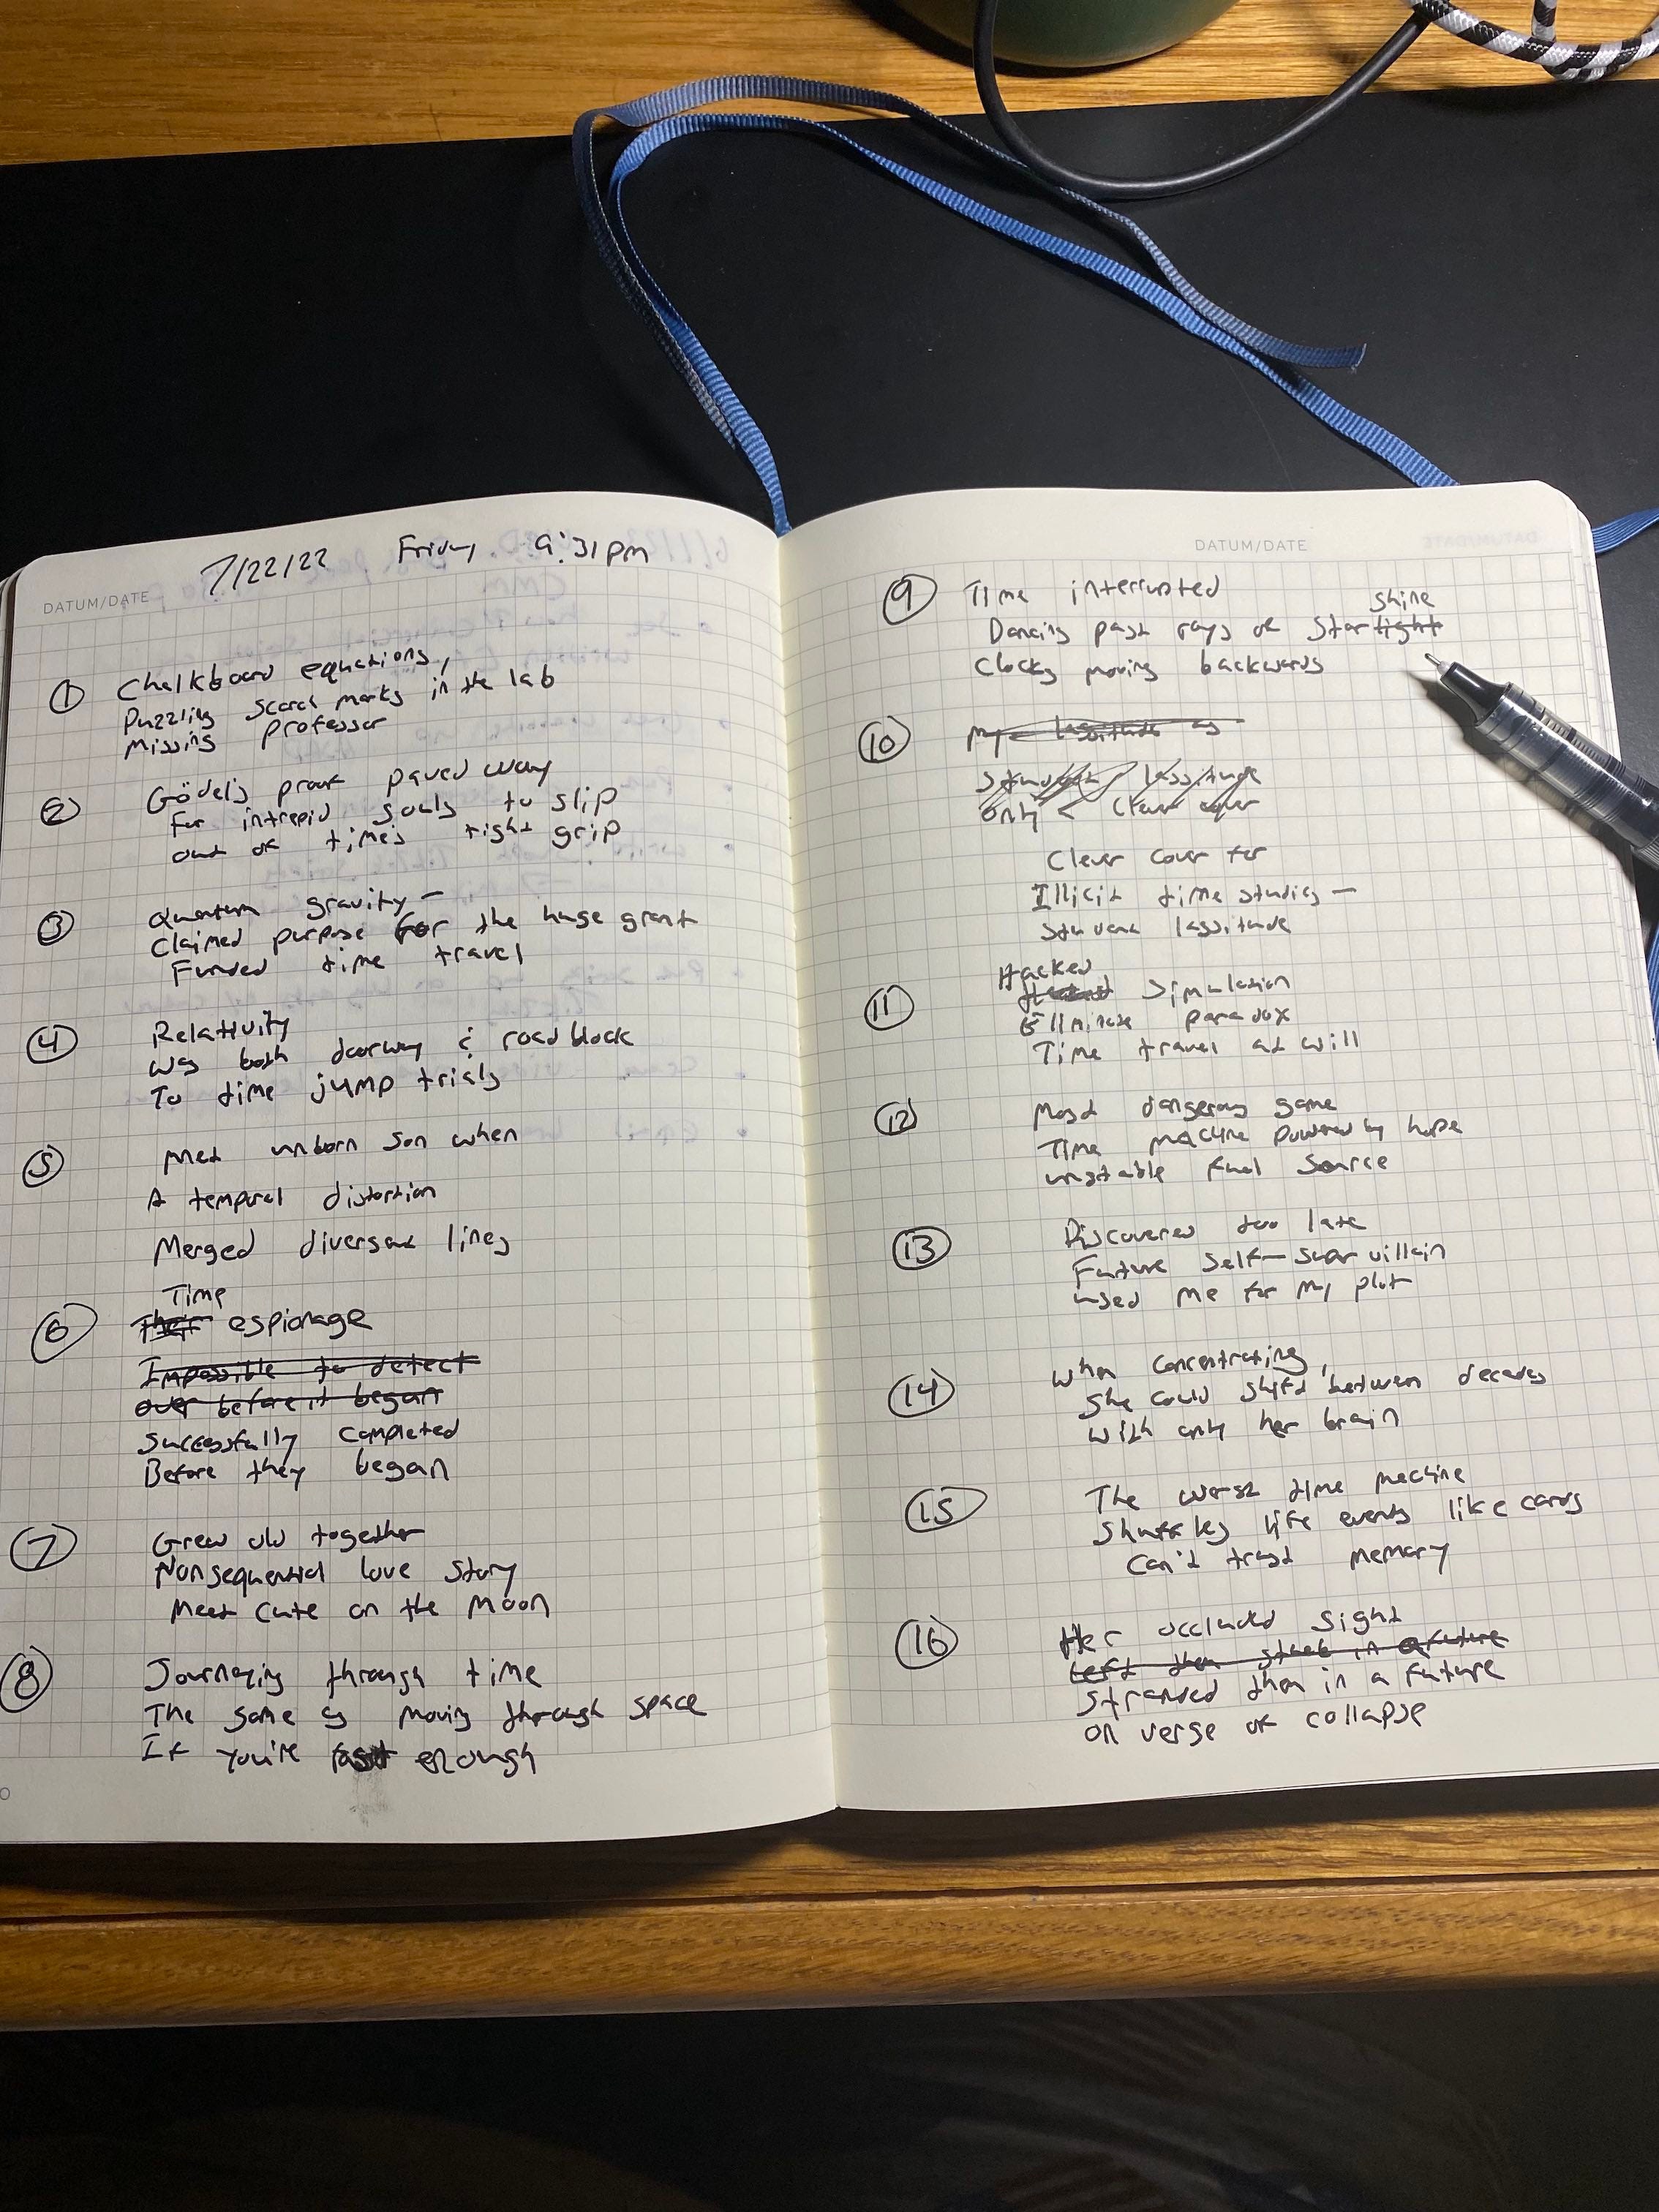 DATUM/DATE
7/22/22 Friday 9:31pm
① Chalkboard equations,
Puzzling scorch marks in the lab
Missing professor
② Gödel's proof paved way
For intrepid souls to slip
out of time's tight grip
③ Quantum gravity—
Claimed purpose for the huge grant
Funded time travel
④ Relativity
Was both doorway & roadblock
To time jump trials
⑤ Met unborn son when
A temporal distortion
Merged divergent lines
Time
⑥ Their espionage
Impossible to detect
over before it began
Successfully completed
Before they began
⑦ Grew old together
Nonsequential love story
Meet cute on the Moon
⑧ Journeying through time
The same as moving through space
If you're fast enough
DATUM/DATE
⑨ Time interrupted
shine
Dancing past rays of Starlight
Clocks moving backwards
⑩ My lassitude as
Student lassitude
only a clever cover
Clever cover for
Illicit time studies—
Student lassitude
Hacked
⑪ simulation
Eliminate paradox
Time travel at will
⑫ Most dangerous game
Time machine powered by hope
unstable fuel source
⑬ Discovered too late
Future self—super villain
used me for my plot
⑭ When concentrating,
She could shift between decades
With only her brain
⑮ The worst time machine
Shuffles life events like cards
Can't trust memory
⑯ Her occluded sight
Left them stuck in a future
Stranded them in a future
on verge of collapse